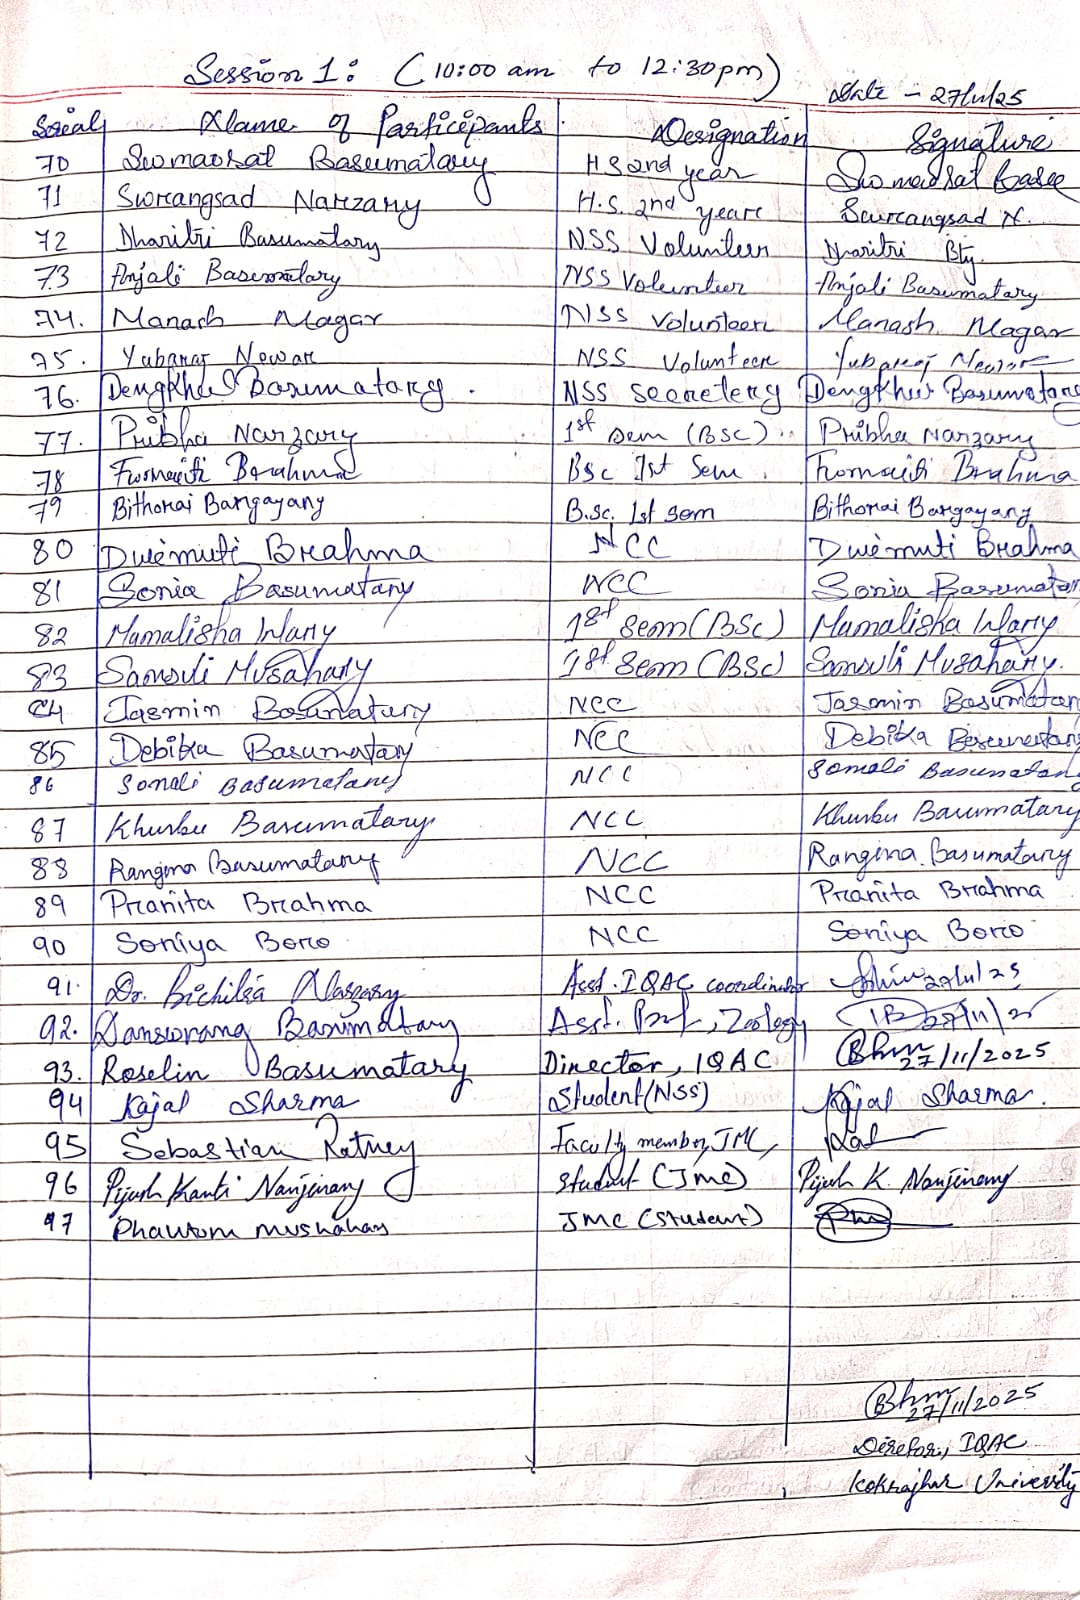 Session 1: (10:00 am to 12:30pm)
Date - 27/11/25
Serial Name of Participants Designation Signature
70 Swmaosat Basumatary H S 2nd year Swmaosat Basu
71 Sworangsad Narzary H.S. 2nd year Sworangsad N.
72 Dharitri Basumatary NSS Volunteer Dharitri Bty.
73 Anjali Basumatary NSS Volunteer Anjali Basumatary
74. Manash Magar NSS Volunteer Manash Magar
75. Yubaraj Newar NSS Volunteer Yubaraj Newar
76. Basumatary. NSS secretery Basumatary
77. Pribha Narzary 1st sem (BSc) Pribha Narzary
78 Brahma BSc 1st Sem. Brahma
79 Bithorai Bargayang B.Sc. 1st sem Bithorai Bargayang
80 Dwimuti Brahma NCC Dwimuti Brahma
81 Sonia Basumatary NCC Sonia Basumatary
82 Mamalisha Wary 1st sem (BSc) Mamalisha Wary
83 Sansuli Musahary 1st Sem (BSc) Sansuli Musahary.
84 Jasmin Basumatary NCC Jasmin Basumatary
85 Debika Basumatary NCC Debika Basumatary
86 Somali Basumatary NCC Somali Basumatary
87 Khurbu Basumatary NCC Khurbu Basumatary
88 Rangina Basumatary NCC Rangina Basumatary
89 Pranita Brahma NCC Pranita Brahma
90 Soniya Boro NCC Soniya Boro
91. Dr. Narzary Asst. IQAC coordinator 27/11/25
92. Danswrang Basumatary Asst. Prof, Zoology 27/11/25
93. Roselin Basumatary Director, IQAC 27/11/2025
94 Kajal Sharma Student (NSS) Kajal Sharma.
95 Sebastian Faculty member, JMC,
96 Pijush Kanti Narjinary Student (JMC) Pijush K. Narjinary
97 JMC (Student)
27/11/2025
Director, IQAC
Kokrajhar University